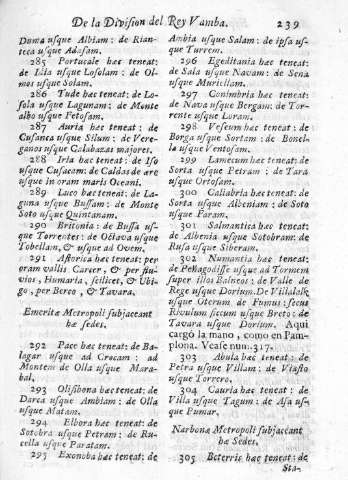 De la Division del Rey Vamba. 239
Duma usque Albiam : de Rian-
teca usque Adasam.
285 Portucale hæc teneat:
de Lila usque Losolam : de Ol-
mos usque Solam.
286 Tude hæc teneat : de Lo-
sola usque Lagunam : de Monte
albo usque Fetosam.
287 Auria hæc teneat : de
Cusanca usque Silum : de Vere-
ganos usque Calabazas majores.
288 Iria hæc teneat : de Iso
usque Cusacam : de Caldas de are
usque in oram maris Oceani.
289 Luco hæc teneat : de La-
guna usque Bussam : de Monte
Soto usque Quintanam.
290 Britonia : de Bussa us-
que Torrentes : de Octava usque
Tobellam, & usque ad Ovem,
291 Astorica hæc teneat : per
oram vallis Carcer, & per flu-
vios, Humaria, scilicet, & Ubi-
go, per Berco, & Tavara.
Emeritæ Metropoli subjaceant
hæ sedes.
292 Pace hæc teneat : de Ba-
lagar usque ad Crocam : ad
Montem de Olla usque Mara-
bal,
293 Olisbona hæc teneat : de
Darca usque Ambiam : de Olla
usque Matam.
294 Elbora hæc teneat : de
Sotobra usque Petram : de Ru-
cella usque Paratam.
295 Exonoba hæc teneat : de
Ambia usque Salam : de ipsa us-
que Turrem.
296 Egeditania hæc teneat:
de Sala usque Navam : de Sena
usque Muriellam.
297 Conimbria hæc teneat:
de Nava usque Bergam : de Tor-
rente usque Loram.
298 Veseum hæc teneat : de
Borga usque Sortam : de Bonel-
la usque Ventosam.
299 Lamecum hæc teneat : de
Sorta usque Petram : de Tara
usque Ortosam.
300 Caliabria hæc teneat : de
Sorta usque Albeniam : de Soto
usque Faram.
301 Salmantica hæc teneat :
de Albenia usque Sotobram : de
Rusa usque Siberam.
302 Numantia hæc teneat :
de Peñagodisse usque ad Tormem
super illos Balneos : de Valle de
Rege usque Dorium. De Villalale
usque Oterum de Fumus : secus
Rivulum siccum usque Breto : de
Tavara usque Dorium. Aqui
cargó la mano, como en Pam-
plona. Vease num. 317.
303 Abula hæc teneat : de
Petra usque Villam : de Viasto
usque Torrero.
304 Cauria hæc teneat : de
Villa usque Tagum : de Asa us-
que Pumar.
Narbonæ Metropoli subjaceant
hæ Sedes.
305 Beterris hæc teneat : de
Sta-